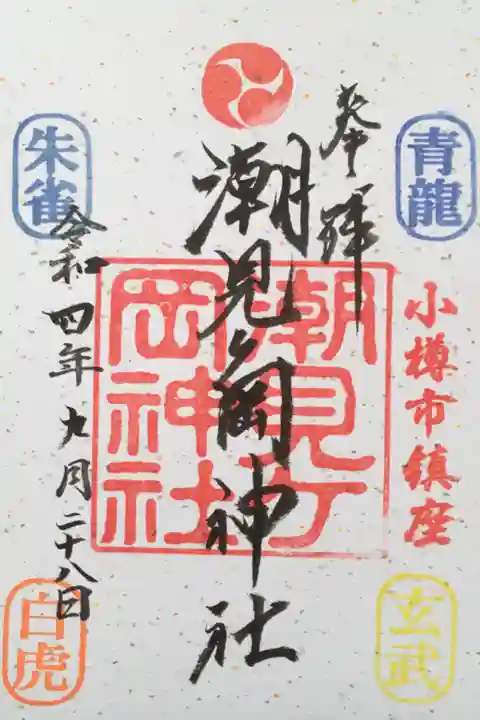 奉拝
青龍
小樽市鎮座
玄武
潮見ヶ岡神社
潮見ヶ
岡神社
朱雀
令和四年九月二十八日
白虎